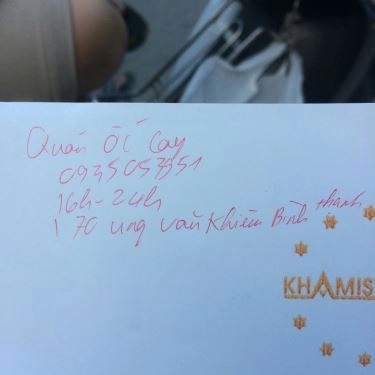 Quán Ốc Cay
0935053351
16h-24h
170 ung văn Khiêm Bình thạnh
KHAMIS